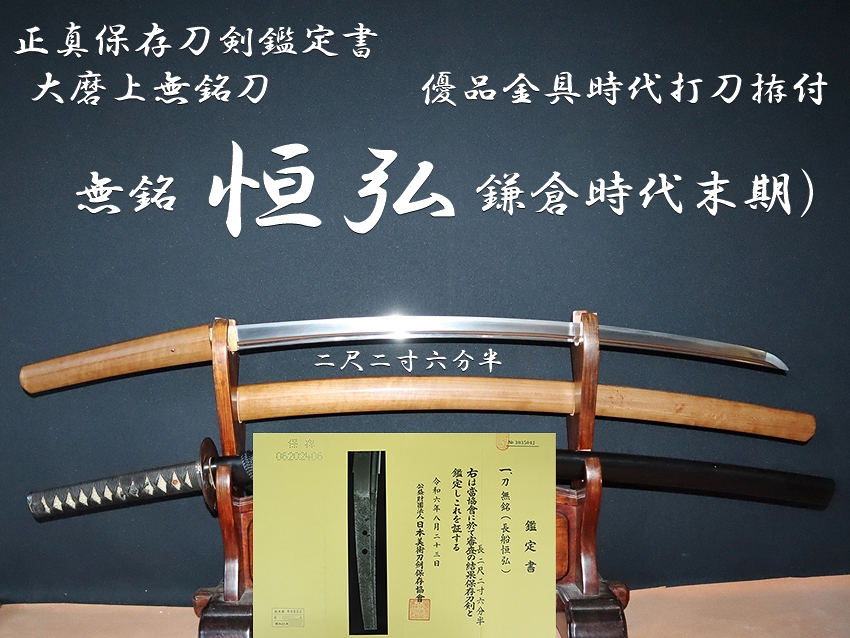 正真保存刀剣鑑定書
大磨上無銘刀
優品金具時代打刀拵付
無銘 恒弘 鎌倉時代末期)
二尺二寸六分半
保存
06202406
№ 3035042
鑑定書
一、刀 無銘(長船恒弘)
長 二尺二寸六分半
右は當協會に於て審査の結果保存刀剣と
鑑定しこれを証する
令和六年八月二十三日
公益財團法人 日本美術刀剣保存協會